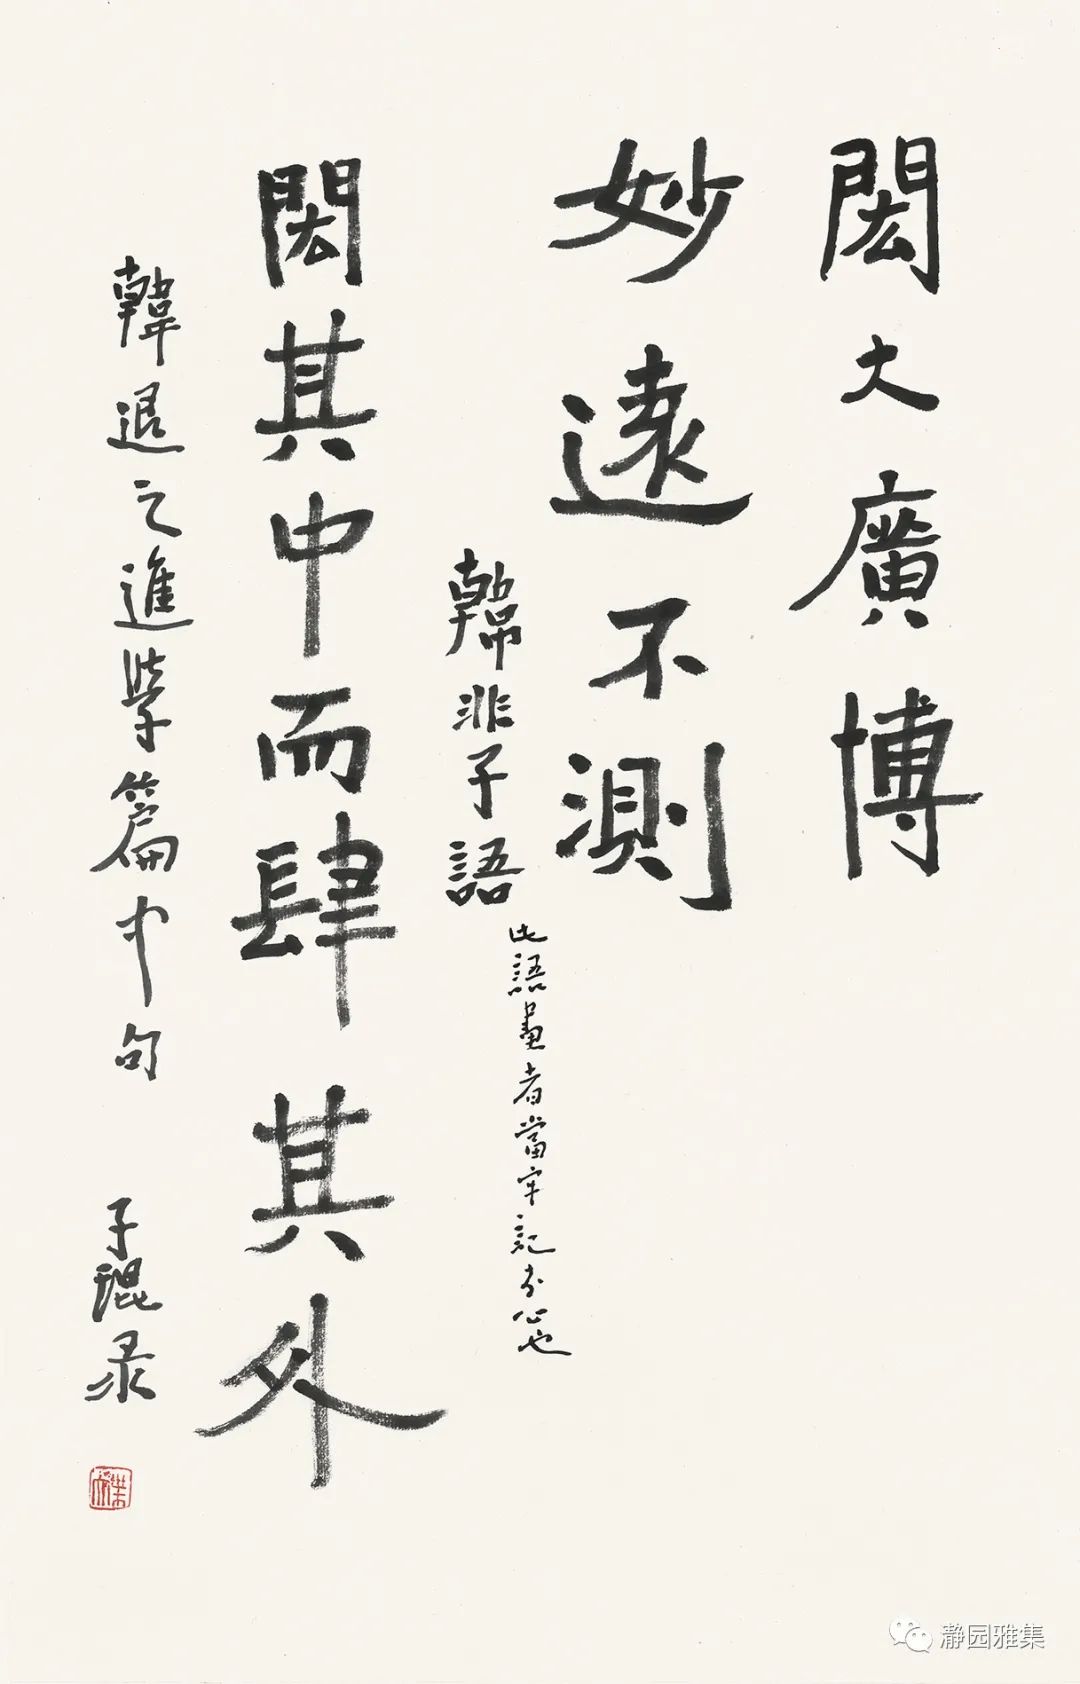 閎大廣博
妙遠不測
韓非子語
此語畫者當牢記於心也
閎其中而肆其外
韓退之進學篇中句
子琨录
瀞园雅集